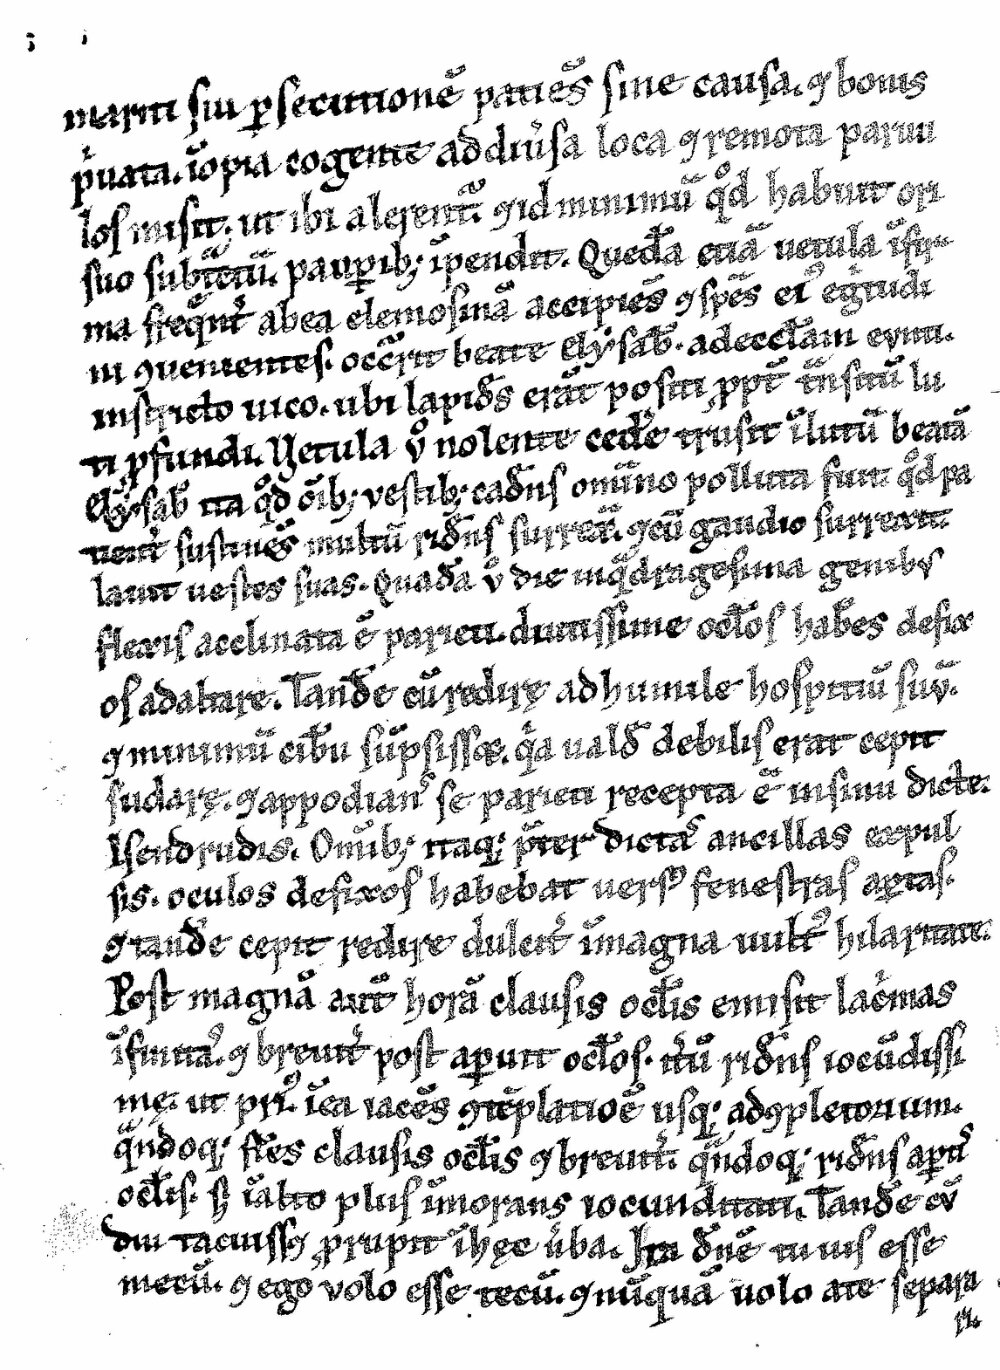 mariti sui ꝑsecutionē patiēs sine causa. ⁊ bonis
p̓uata. īopia cogente ad diu̓sa loca ⁊ remota paruu
los misit; ut ibi alerent᷑. ⁊ id minimū qͦd habuit ori
suo subt̄ctū. pauꝑib; īpendit. Quedā etiā uetula īfir
ma freq̄nt̓ ab ea elemosinā accipiēs ⁊ spēs ei᷒ egͥtudi
ni ⁊uenientes. occr̄it beate Elysab̄. ad eccl̄am eunti.
in stricto uico. ubi lapidēs erāt positi ꝓpt̄ t̄nsitū lu
ti ꝓfundi. Uetula v̊ nolente cedēe trusit ī lutū beatā
Elysab̄ ita qͦd oīb; vestib; cadēs omīno polluta fuit. qͦd pa
tient̓ sustinēs multū ridēs surrex̄. ⁊ cū gaudio surrexit.
lauit uestes suas. Quadā v̊ die in qͣdragesima genibus
flexis acclinata ē parieti. diutissime ocl̄os hab̄es defix
os ad altare. Tandē cū redirę ad humile hospitiū suū.
⁊ minimū cib̄u sūpsissꝫ. qͥa uald̄ debilis erat cepit
sudarę. ⁊ appodians se parieti recepta ē in sinu dicte.
Isendrudis. Omīb; itaq; p̄ter dictas ancillas expul
sis. oculos defixos habebat uersꝰ fenestras aꝑtas.
⁊ tandē cepit ridere dulcit̓ ī magna uultꝰ hilaritate.
Post magnā aut̄ horā clausis ocl̄is emisit lac̓mas
īfinitas. ⁊ breuit̓ post aꝑuit ocl̄os. it̓ū ridēs iocūdissi
mę. ut pri᷒. ī ea iacēs ⁊tēplatiōe usq; ad ⁊pletorium.
qn̄doq; flēs clausis ocl̄is ⁊ breuit̓. qn̄doq; ridēs aꝑtis
ocl̄is. sꝫ ī alto plus īmorans iocunditati. Tandē cū
diu tacuissꝫ ꝓrupit ī hęc u̓ba. Ita dn̄e tu uis esse
mecū. ⁊ ego volo esse tecū. ⁊ nūquā uolo a te separa
ri.